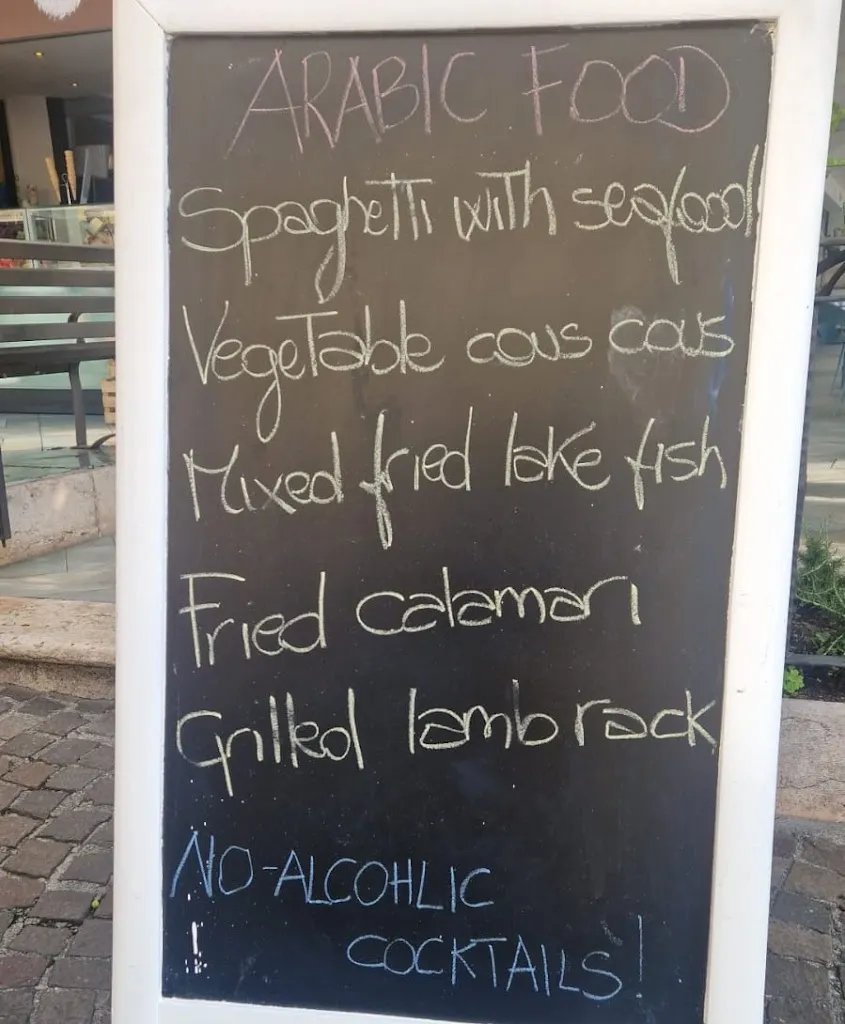 ARABIC FOOD
Spaghetti with seafood
Vegetable cous cous
Mixed fried lake fish
Fried calamari
Grilled lamb rack
NO-ALCOHLIC
COCKTAILS!